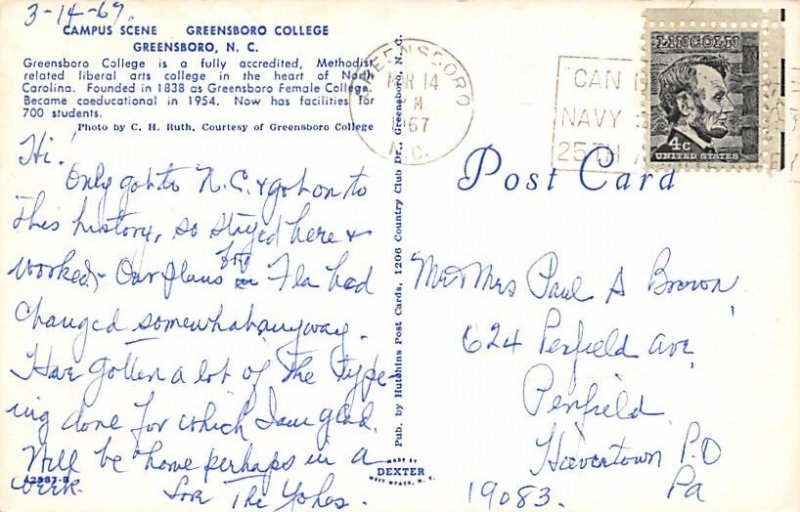 3-14-67.
CAMPUS SCENE GREENSBORO COLLEGE
GREENSBORO, N. C.
Greensboro College is a fully accredited, Methodist
related liberal arts college in the heart of North
Carolina. Founded in 1838 as Greensboro Female College.
Became coeducational in 1954. Now has facilities for
700 students.
Photo by C. H. Ruth, Courtesy of Greensboro College
Hi!
Only got to N.C. & got on to
this history, so stayed here &
worked. Our plans for Fla had
changed somewhat anyway.
Have gotten a lot of the type-
ing done for which I am glad.
Will be home perhaps in a
week.
42987-B
Love The Yohes.
Pub. by Hutchins Post Cards, 1206 Country Club Dr., Greensboro, N. C.
MADE BY
DEXTER
WEST NYACK, N. Y.
GREENSBORO
MAR 14
PM
1967
N.C.
CAN
NAVY
25TH
LINCOLN
4c
UNITED STATES
Post Card
Mr & Mrs Paul S Brown
624 Penfield Ave
Penfield
Havertown P.O
19083. Pa